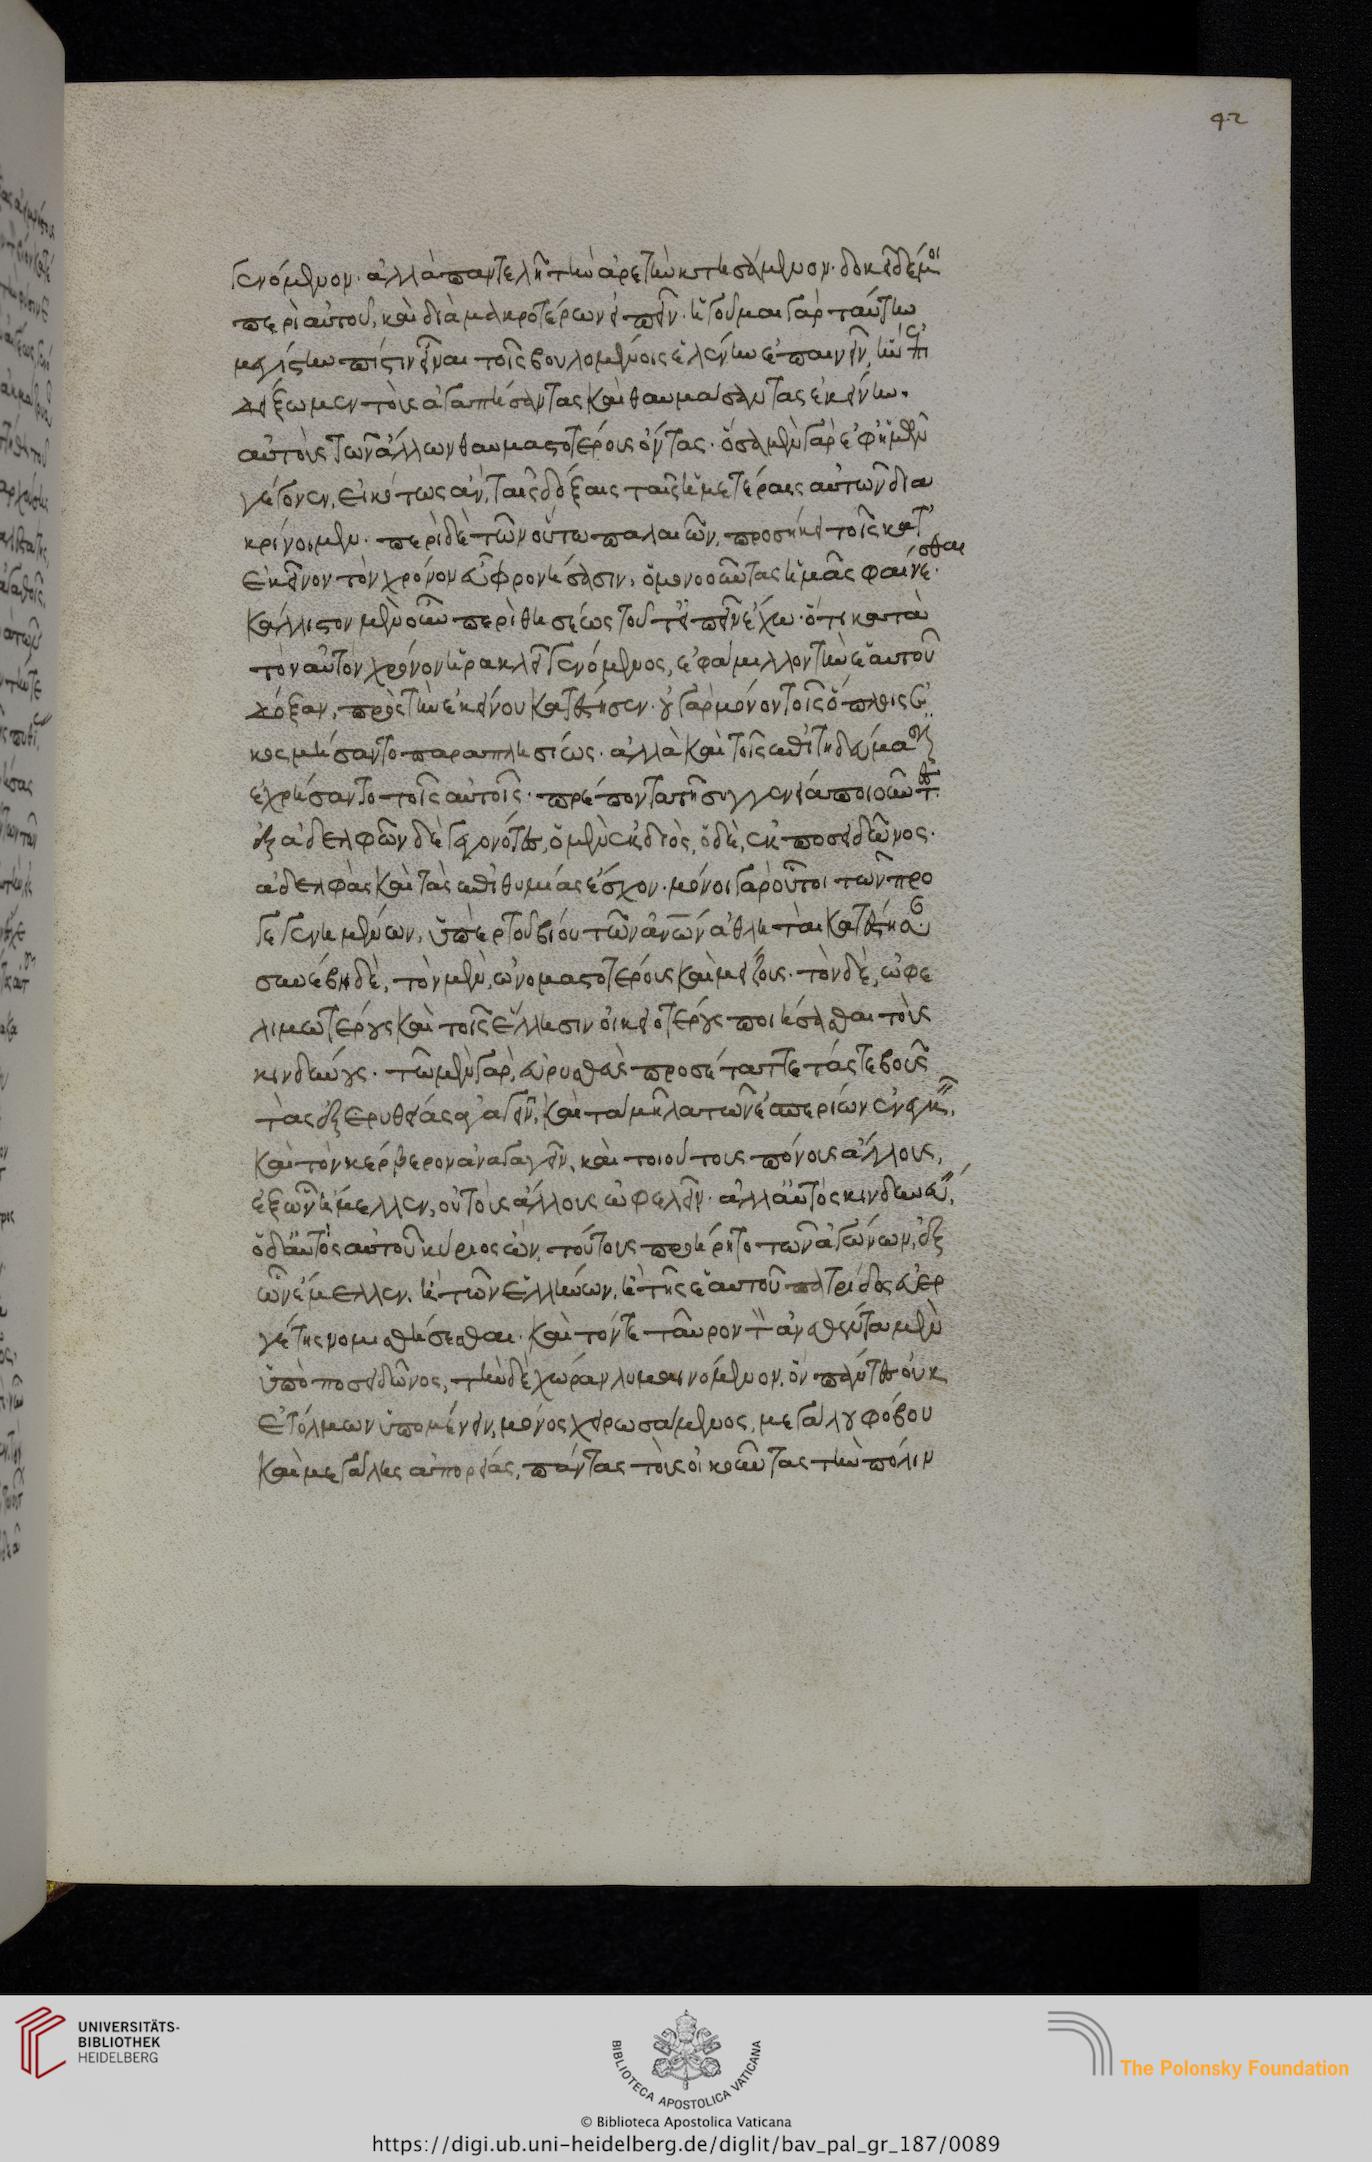 42
γενόμενον· ἀλλὰ παντελῆ τὴν ἀρετὴν κτησάμενον· δοκεῖ δέ μοι
περὶ αὐτοῦ, καὶ διὰ μακροτέρων εἰπεῖν· ἡγοῦμαι γὰρ ταύτην
μεγίστην πίστιν εἶναι τοῖς βουλομένοις ἑλένην ἐπαινεῖν, ἢν ἐπι
δείξωμεν τοὺς ἀγαπήσαντας καὶ θαυμάσαντας ἐκείνην.
αὐτοὺς τῶν ἄλλων θαυμαστοτέρους ὄντας· ὅσα μὲν γὰρ ἐφ' ἡμῶν
γέγονεν, εἰκότως ἂν, ταῖς δόξαις ταῖς ἡμετέραις αὐτῶν δια
κρίνοιμεν· περὶ δὲ τῶν οὕτω παλαιῶν, προσήκει τοῖς κατ'
ἐκεῖνον τὸν χρόνον εὖ φρονήσασιν, ὁμονοοῦντας ἡμᾶς φαίνεσθαι·
κάλλιστον μὲν οὖν περὶ θησέως τοῦτ' εἰπεῖν ἔχω· ὅτι κατὰ
τὸν αὐτὸν χρόνον ἡρακλεῖ γενόμενος, ἐφάμιλλον τὴν ἑαυτοῦ
δόξαν, πρὸς τὴν ἐκείνου κατέστησεν· οὐ γὰρ μόνον τοῖς ὅπλοις ἐ
κοσμήσαντο παραπλησίοις· ἀλλὰ καὶ τοῖς ἐπιτηδεύμασιν
ἐχρήσαντο τοῖς αὐτοῖς· πρέποντα τῇ συγγενείᾳ ποιοῦντες·
ἐξ ἀδελφῶν δὲ γεγονότες, ὁ μὲν ἐκ διὸς, ὁ δὲ, ἐκ ποσειδῶνος·
ἀδελφὰς καὶ τὰς ἐπιθυμίας ἔσχον· μόνοι γὰρ οὗτοι τῶν προ
γεγενημένων, ὑπὲρ τοῦ βίου τῶν ἀνων ἀθληταὶ κατέστησαν
συνέβη δὲ, τὸν μὲν, ὀνομαστοτέρους καὶ μείζους· τὸν δὲ, ὠφε
λιμωτέρους καὶ τοῖς ἕλλησιν οἰκειοτέρους ποιήσασθαι τοὺς
κινδύνους· τῷ μὲν γὰρ, εὐρυσθεὺς προσέταττε τάς τε βοῦς
τὰς ἐξ ἐρυθείας ἀγαγεῖν, καὶ τὰ μῆλα τῶν ἑσπερίδων ἐνεγκεῖν,
καὶ τὸν κέρβερον ἀναγαγεῖν, καὶ τοιούτους πόνους ἄλλους,
ἐξ ὧν ἤμελλεν, οὐ τοὺς ἄλλους ὠφελεῖν· ἀλλ' αὐτὸς κινδυνεύειν,
ὁ δ' αὐτὸς αὑτοῦ κύριος ὢν, τούτους προῃρεῖτο τῶν ἀγώνων, ἐξ
ὧν ἔμελλεν, ἢ τῶν ἑλλήνων, ἢ τῆς ἑαυτοῦ πατρίδος εὐερ
γέτης νομισθήσεσθαι· καὶ τόν τε ταῦρον τὸν ἀνεθέντα μὲν
ὑπὸ ποσειδῶνος, τὴν δὲ χώραν λυμαινόμενον, ὃν πάντες οὐκ
ἐτόλμων ὑπομένειν, μόνος χειρωσάμενος, μεγάλου φόβου
καὶ μεγάλης ἀπορίας, πάντας τοὺς οἰκοῦντας τὴν πόλιν
UNIVERSITÄTS-
BIBLIOTHEK
HEIDELBERG
BIBLIOTECA APOSTOLICA VATICANA
The Polonsky Foundation
© Biblioteca Apostolica Vaticana
https://digi.ub.uni-heidelberg.de/diglit/bav_pal_gr_187/0089